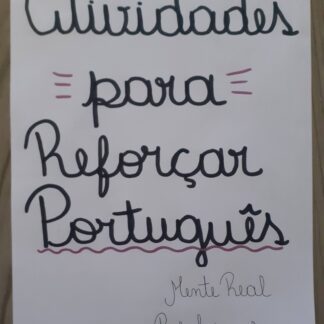 Atividades
para
Reforçar
Português
Mente Real